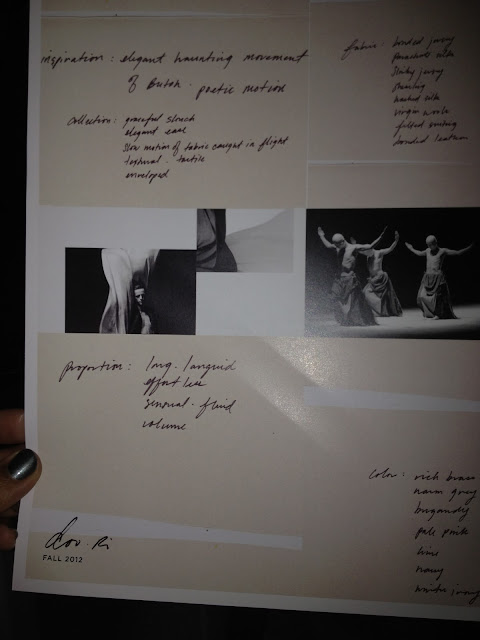 inspiration : elegant haunting movement
of Butoh . poetic motion
collection : graceful slouch
elegant ease
slow motion of fabric caught in flight
textural . tactile
enveloped
fabric : bonded jersey
parachute silk
slinky jersey
shearling
washed silk
virgin wool
felted suiting
bonded leather
proportion : long . languid
effortless
sensual . fluid
volume
color : rich
warm grey
burgundy
pale pink
wine
navy
winter ivory
FALL 2012